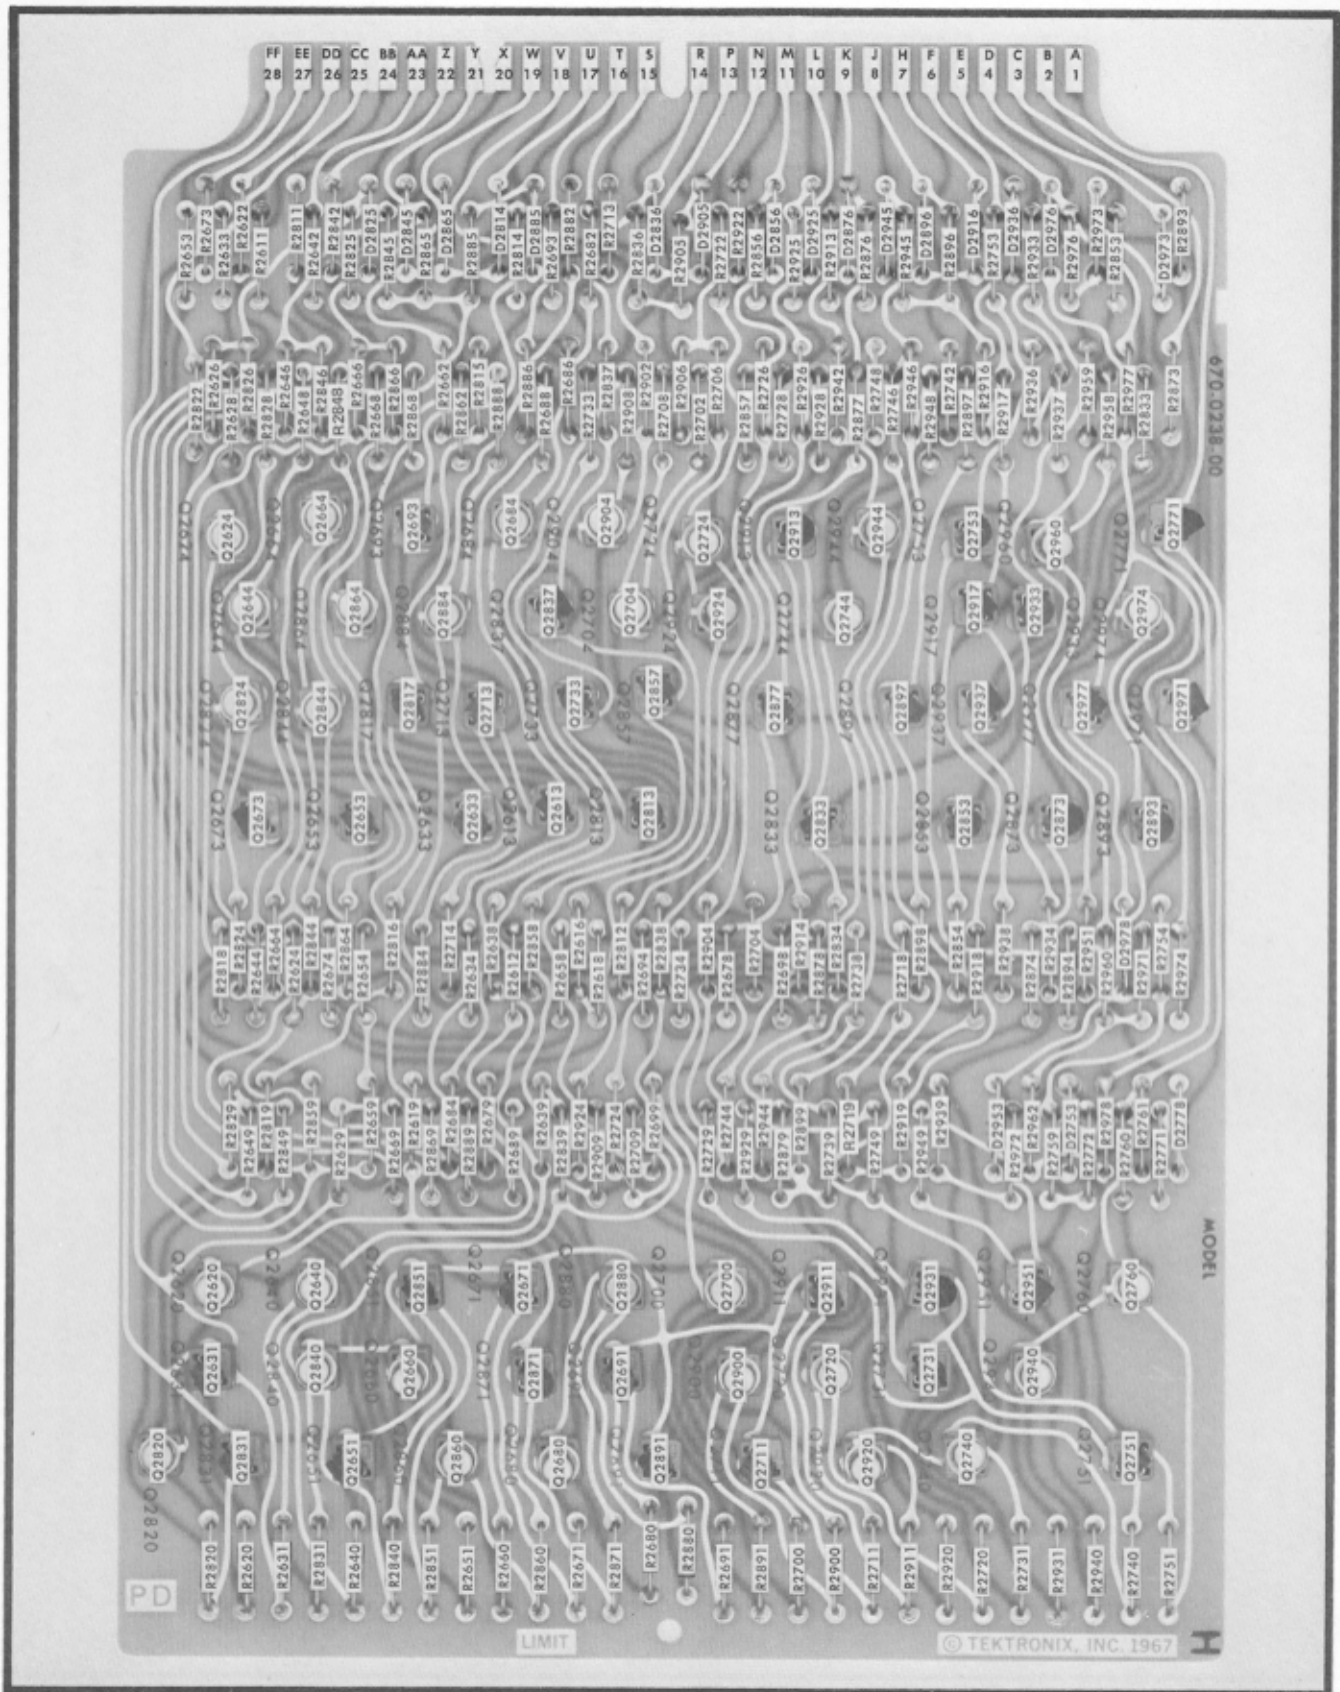 FF EE DD CC BB AA Z Y X W V U T S R P N M L K J H F E D C B A
28 27 26 25 24 23 22 21 20 19 18 17 16 15 14 13 12 11 10 9 8 7 6 5 4 3 2 1
R2653 R2673 R2633 R2622 R2611 R2811 R2642 R2842 R2825 D2825 R2845 D2845 R2865 D2865 R2885 D2814 R2814 D2885 R2693 R2882 R2682 R2713 R2836 D2836 R2905 D2905 R2722 R2922 R2856 D2856 R2925 D2925 R2913 D2876 R2876 D2945 R2945 D2896 R2896 D2916 R2753 D2936 R2933 D2976 R2976 R2973 R2853 D2973 R2893
670-0238-00
R2822 R2626 R2628 R2826 R2828 R2646 R2648 R2846 R2848 R2666 R2668 R2866 R2868 R2662 R2862 R2815 R2888 R2886 R2688 R2686 R2733 R2837 R2908 R2902 R2708 R2906 R2702 R2706 R2857 R2726 R2728 R2926 R2928 R2942 R2877 R2748 R2746 R2946 R2948 R2742 R2897 R2916 R2917 R2936 R2937 R2959 R2958 R2977 R2833 R2873
Q2624 Q2664 Q2693 Q2684 Q2904 Q2724 Q2913 Q2944 Q2753 Q2960 Q2771
Q2624 Q2693 Q2684 Q2904 Q2724 Q2913 Q2944 Q2753 Q2960 Q2771
Q2644 Q2864 Q2884 Q2837 Q2704 Q2924 Q2744 Q2917 Q2933 Q2974
Q2644 Q2864 Q2884 Q2837 Q2704 Q2924 Q2744 Q2917 Q2933 Q2974
Q2824 Q2844 Q2817 Q2713 Q2733 Q2857 Q2877 Q2897 Q2937 Q2977 Q2971
Q2824 Q2844 Q2817 Q2713 Q2733 Q2857 Q2877 Q2897 Q2937 Q2977 Q2971
Q2673 Q2653 Q2633 Q2613 Q2813 Q2833 Q2853 Q2873 Q2893
Q2673 Q2653 Q2633 Q2613 Q2813 Q2833 Q2853 Q2873 Q2893
R2818 R2824 R2644 R2664 R2624 R2844 R2674 R2864 R2654 R2816 R2884 R2714 R2634 R2638 R2612 R2858 R2658 R2616 R2618 R2812 R2694 R2838 R2734 R2904 R2678 R2704 R2698 R2914 R2878 R2834 R2738 R2718 R2898 R2854 R2918 R2938 R2874 R2934 R2894 R2951 R2960 D2978 R2971 R2754 R2974
R2829 R2649 R2819 R2849 R2859 R2629 R2659 R2669 R2619 R2869 R2684 R2889 R2679 R2689 R2639 R2839 R2924 R2909 R2724 R2709 R2699 R2729 R2744 R2929 R2944 R2879 R2899 R2739 R2719 R2749 R2919 R2949 R2939 D2953 R2972 R2962 R2759 D2753 R2772 R2978 R2760 R2761 R2771 D2778
MODEL
Q2620 Q2640 Q2851 Q2671 Q2880 Q2700 Q2911 Q2931 Q2951 Q2760
Q2620 Q2640 Q2671 Q2880 Q2700 Q2911 Q2931 Q2760
Q2631 Q2840 Q2660 Q2871 Q2691 Q2900 Q2720 Q2731 Q2940
Q2840 Q2871 Q2731
Q2820 Q2831 Q2651 Q2860 Q2680 Q2891 Q2711 Q2920 Q2740 Q2751
Q2820 Q2831 Q2651 Q2680 Q2891 Q2920 Q2751
R2820 R2620 R2631 R2831 R2640 R2840 R2851 R2651 R2660 R2860 R2671 R2871 R2680 R2880 R2691 R2891 R2700 R2900 R2711 R2911 R2920 R2720 R2731 R2931 R2940 R2740 R2751
PD
LIMIT
© TEKTRONIX, INC. 1967
H